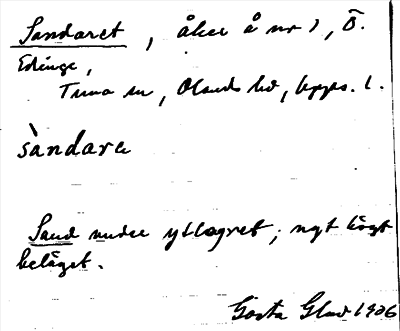 Sandaret, åker å nr 1, Ö.
Edinge,
Tuna sn, Olands hd, Upps. l.
sàndarɐ
Sand under ytlagret; ngt högt
beläget.
Gösta Glad 1926